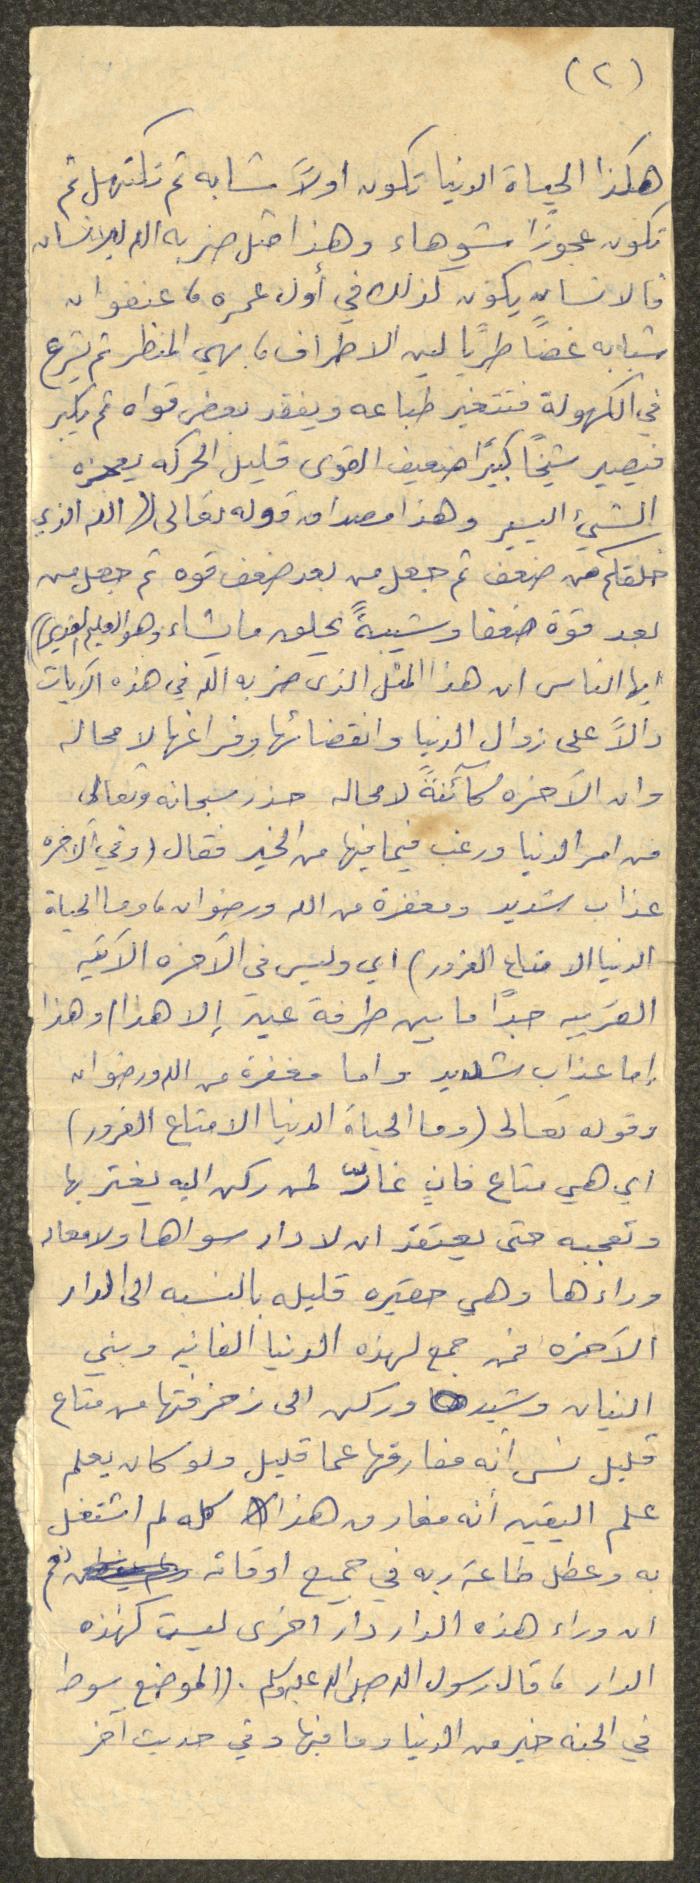 (٢)
هكذا الحياة الدنيا تكون اولاً شابه ثم تكتهل ثم
تكون عجوزاً شوهاء وهذا مثل ضربه الله للانسان
فالانسان يكون كذلك في أول عمره ، عنفوان
شبابه غضاً طرياً لين الاطراف ، بهي المنظر ثم يشرع
في الكهولة فتتغير طباعه ويفقد بعض قواه ثم يكبر
فيصير شيخاً كبيراً ضعيف القوى قليل الحركه يعجزه
الشيء اليسير وهذا مصداق قوله تعالى (( الله الذي
خلقكم من ضعف ثم جعل من بعد ضعف قوه ثم جعل من
بعد قوة ضعفا وشيبةً يخلق ما يشاء وهو العليم القدير))
ايها الناس ان هذا المثل الذى ضربه الله في هذه الآيات
دالاً على زوال الدنيا وانقضائها وفراغها لا محاله
وان الآخره كآئنةً لا محاله حذر سبحانه وتعالى
من امر الدنيا ورغب فيما فيها من الخير فقال (وفي الآخره
عذاب شديد ومغفرة من الله ورضوان ، وما الحياة
الدنيا الا متاع الغرور) اي وليس في الآخره الآتيه
القريبه جداً ما بين طرفة عين إلا هذا / وهذا
إما عذاب شديد واما مغفرة من الله ورضوان
وقوله تعالى (وما الحياة الدنيا الا متاع الغرور)
اي هي متاع فانٍ غارّ لمن ركن اليه يغتر بها
وتعجبه حتى يعتقد ان لا دار سواها ولا معاد
وراءها وهي حقيره قليله بالنسبه الى الدار
الآخره فمن جمع لهذه الدنيا الفانيه وبني
البنيان وشيد وركن الى زخرفتها من متاع
قليل نسى أنه مفارقها عما قليل ولو كان يعلم
علم اليقين أنه مفارق هذا كله لم اشتغل
به وعطل طاعة ربه في جميع اوقاته
ان وراء هذه الدار دار اخرى ليست كهذه
الدار ، قال رسول الله صلى الله عليه وسلم . ((لموضع سوط
في الجنه خير من الدنيا وما فيها وفي حديث آخر